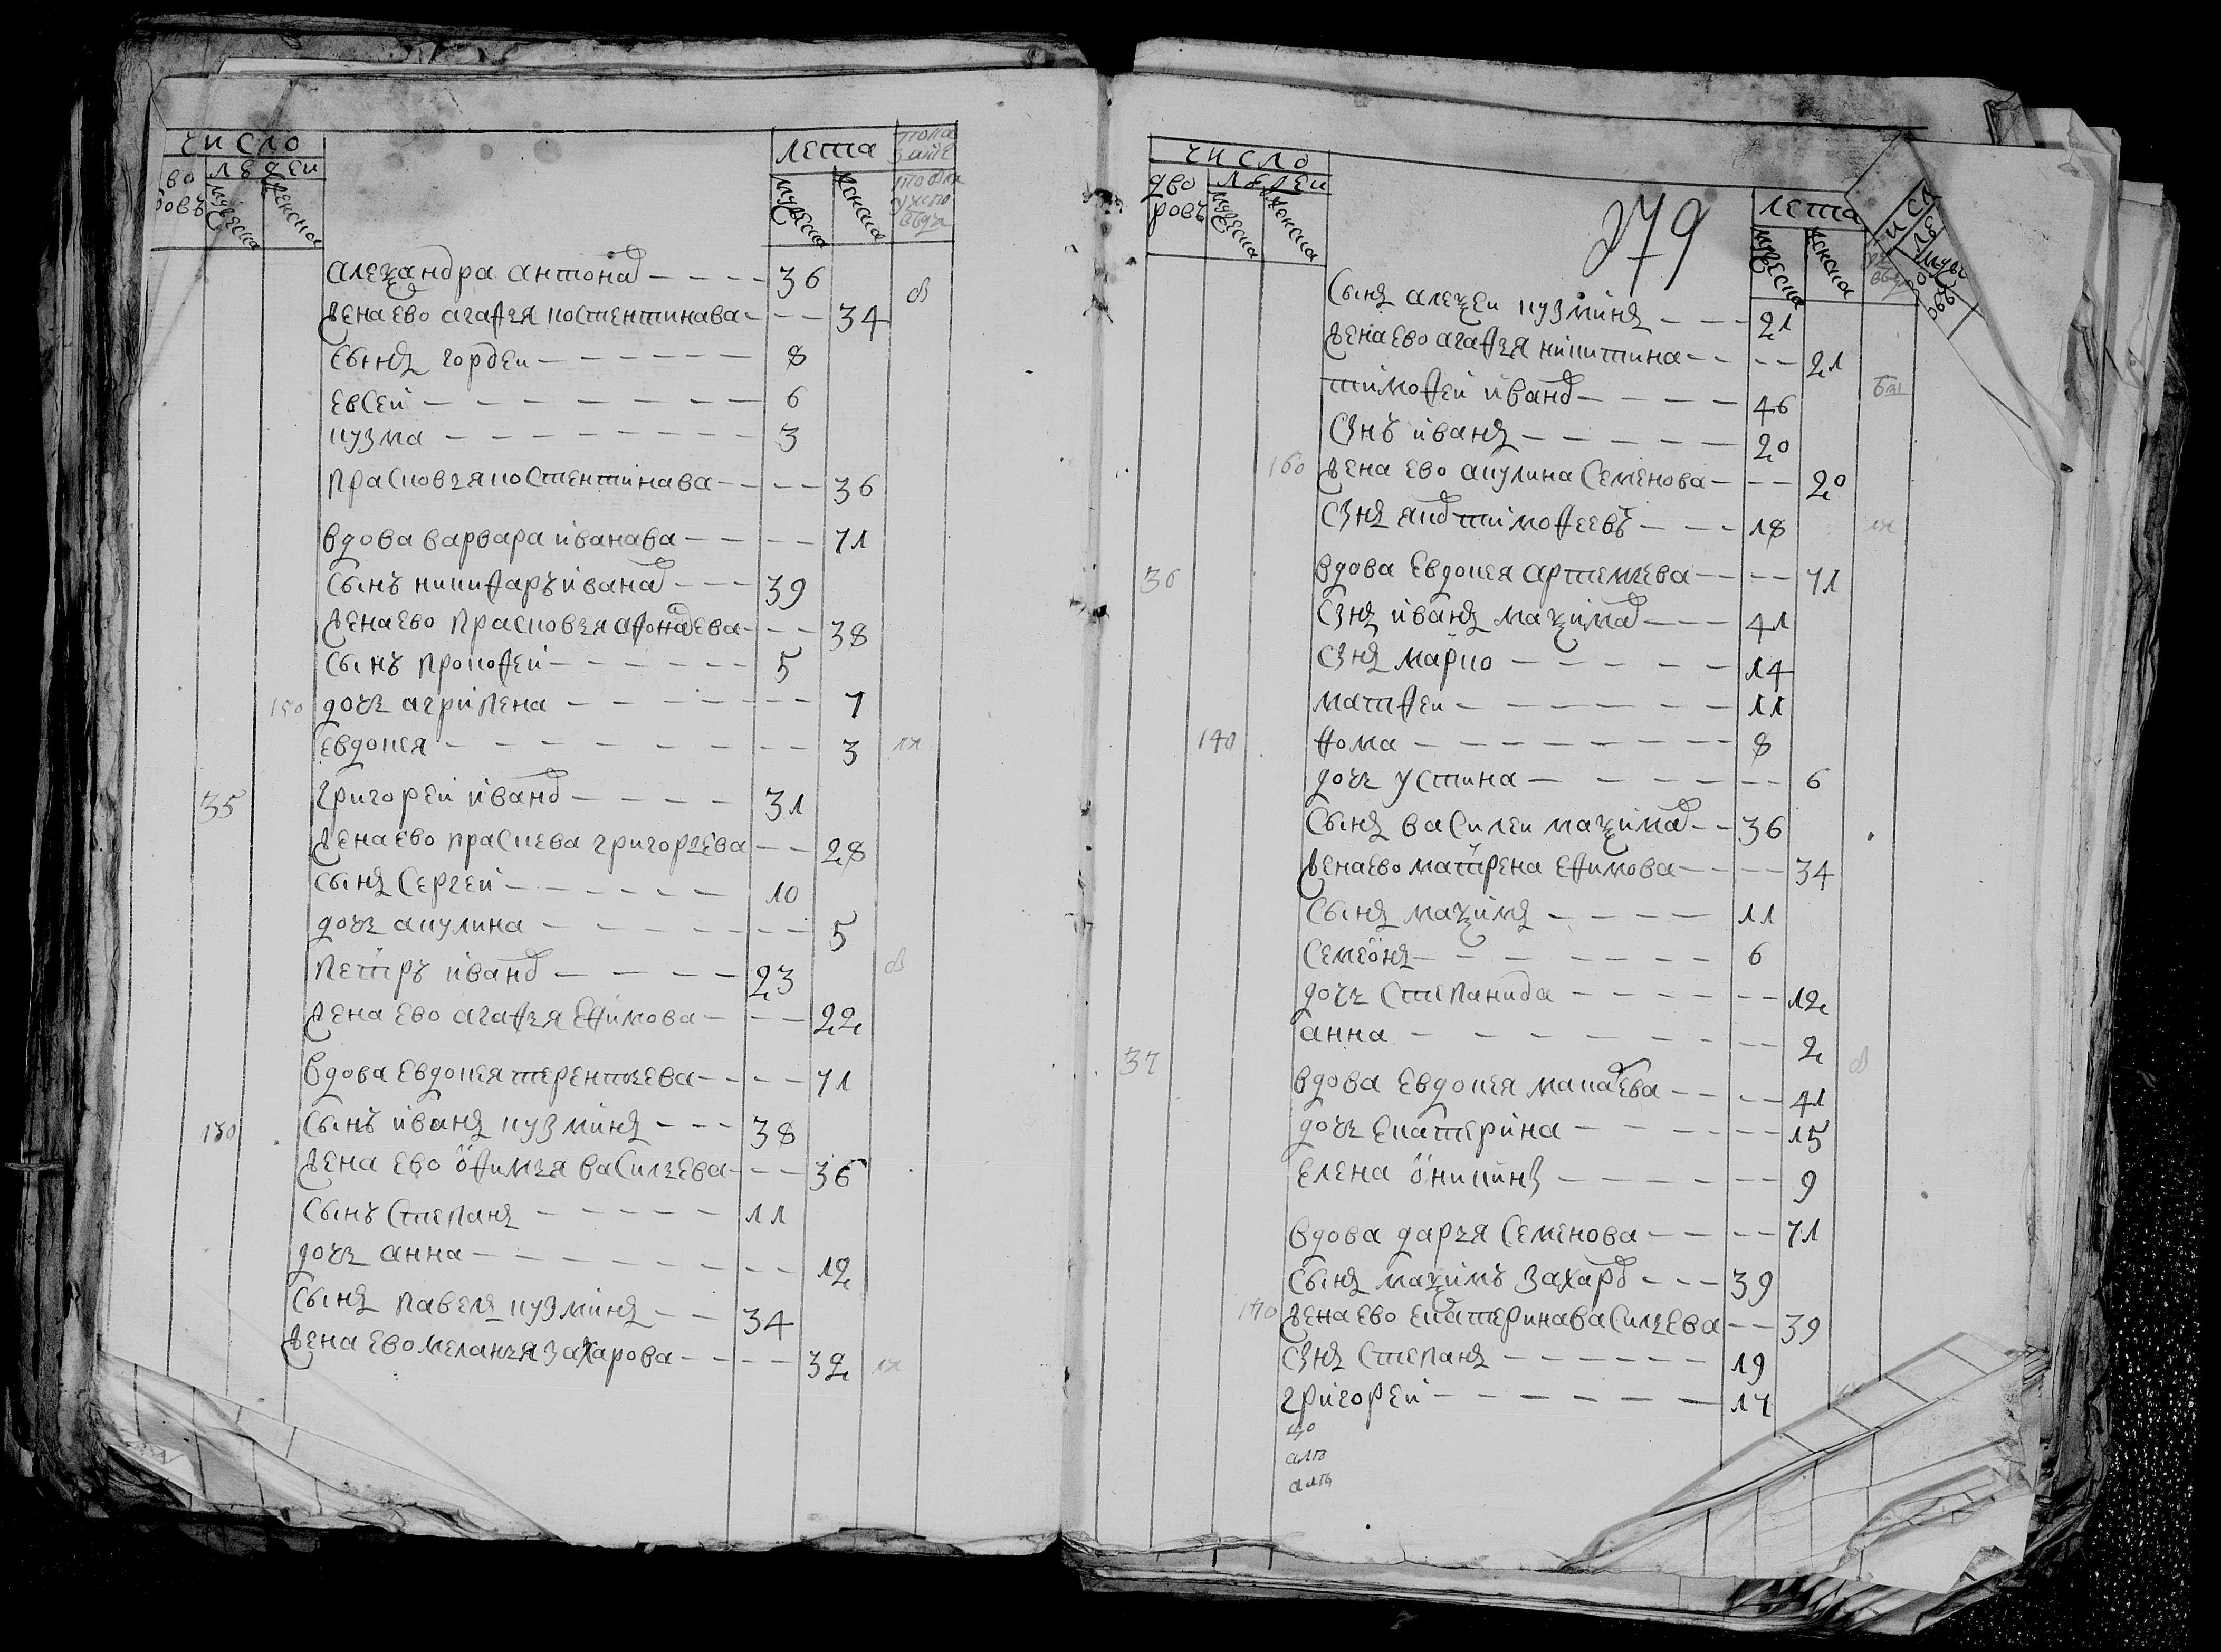 число
людей
дво
ровъ
мужеска
женска
лета
мужеска
женска
александра антонов 36
жена ево агафья костентинава 34
сынъ гордеи 8
евсей 6
кузма 3
прасковья костентинава 36
вдова варвара иванава 71
сынъ никифаръ иванов 39
жена ево прасковья афонасева 38
сынъ прокофей 5
150 дочь агрипена 7
евдокея 3
35 григореи иванов 31
жена ево праскева григорьева 28
сынъ сергеи 10
дочь акулина 5
петръ иванов 23
жена ево агафья ефимова 22
вдова евдокея терентьева 71
130 сынъ иванъ кузминъ 38
жена ево офимья васильева 36
сынъ степанъ 11
дочь анна 12
сынъ павелъ кузминъ 34
жена ево меланья захарова 32
число
дво
ровъ
людеи
мужеска
женска
279
лета
мужеска
женска
сынъ алеѯеи кузминъ 21
жена ево агафья никитина 21
тимофеи иванов 46
снъ иванъ 20
160 жена ево акулина семенова 20
снъ яков тимофеевъ 18
36 вдова евдокея артемьева 71
снъ иванъ маѯимов 41
снъ марко 14
матфеи 11
140 фома 8
дочь устина 6
сынъ василеи маѯимов 36
жена ево матрена ефимова 34
сынъ маѯимъ 11
семеонъ 6
дочь степанида 12
анна 2
37 вдова евдокея макаева 41
дочь екатерина 15
елена оникина 9
вдова дарья семенова 71
сынъ маѯимъ захаров 39
170 жена ево екатерина васильева 39
снъ степанъ 19
григореи 17